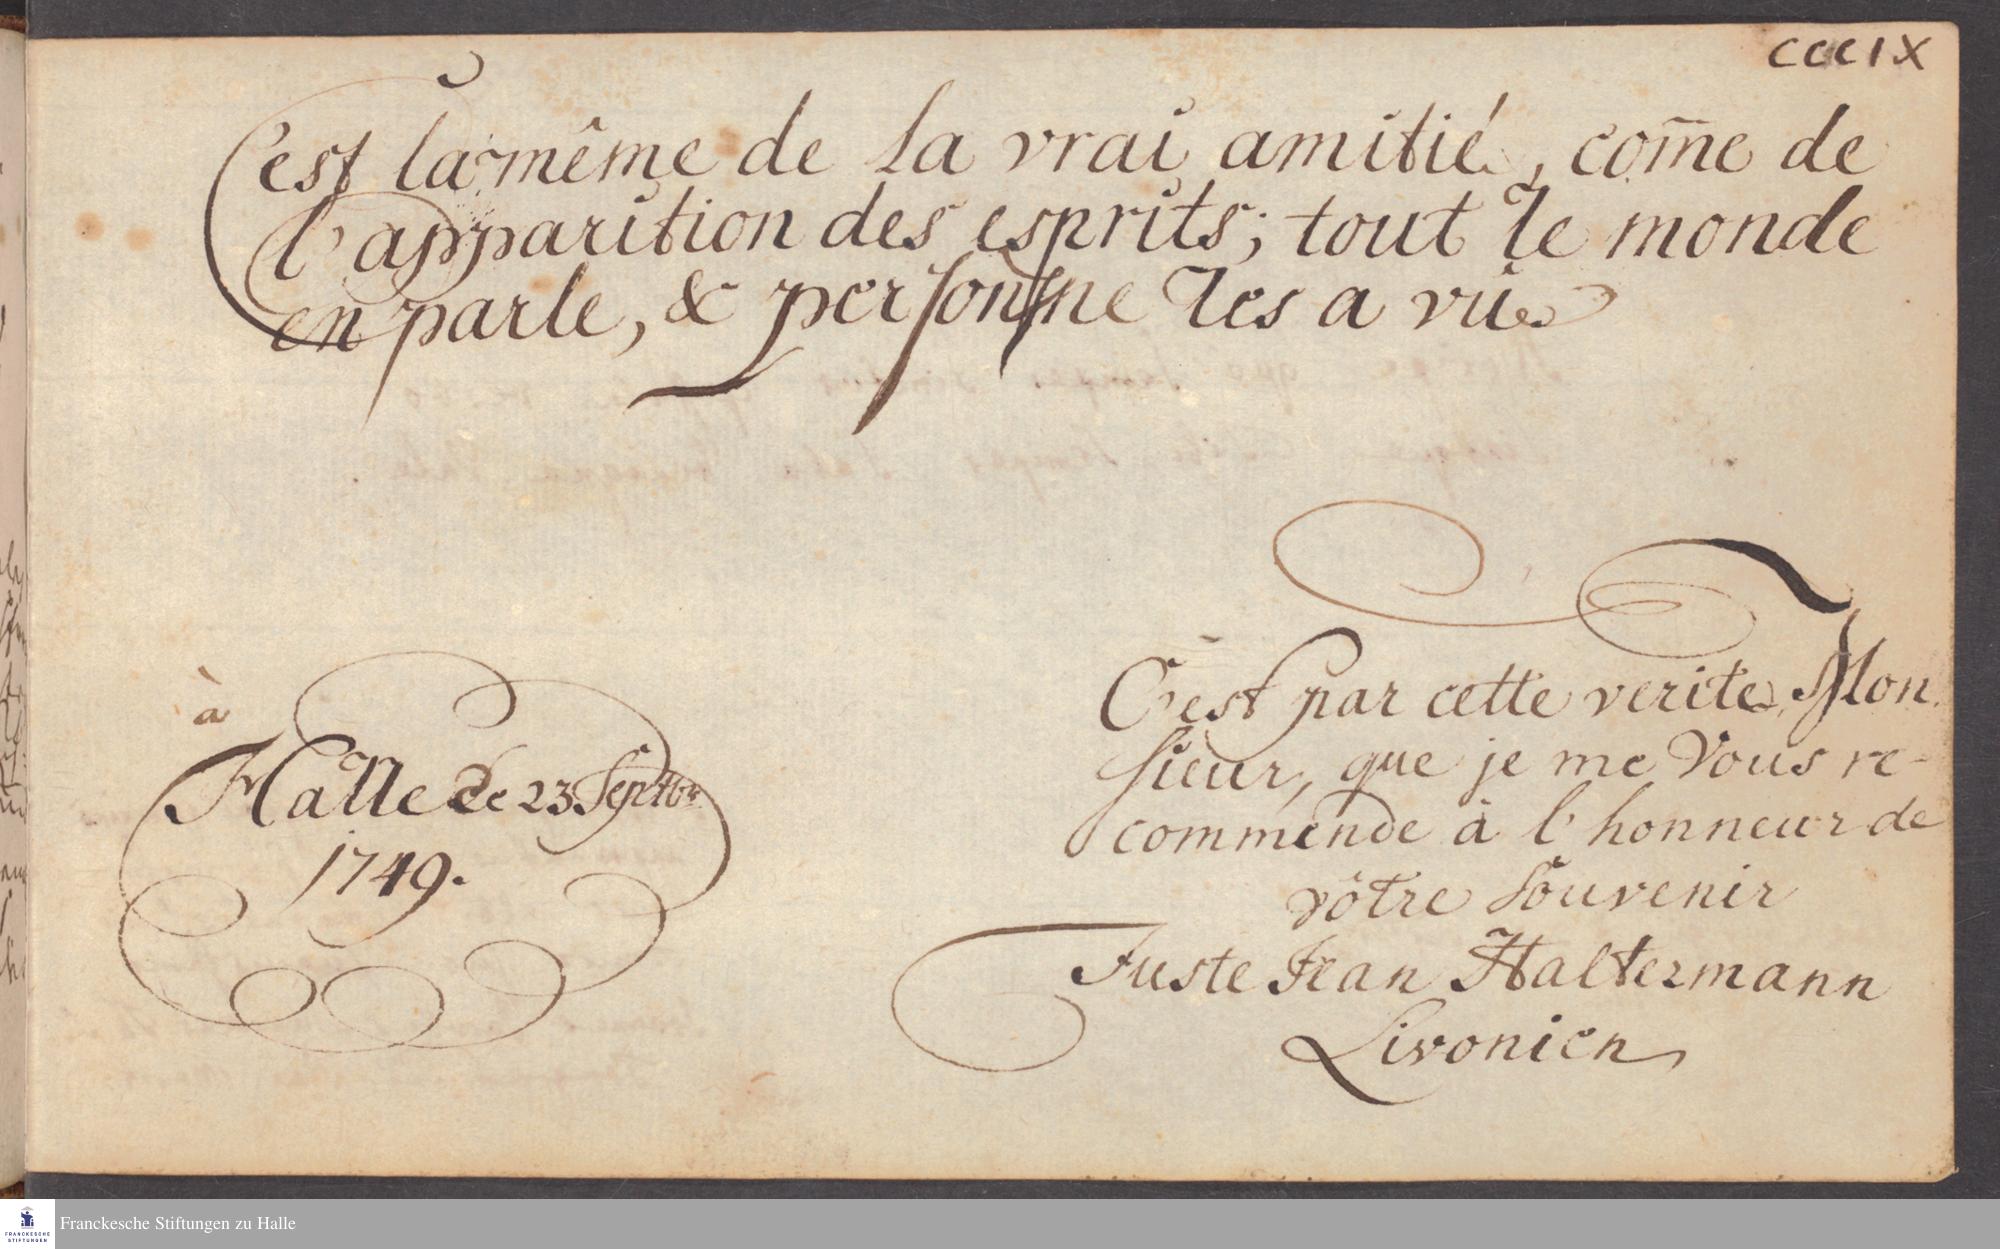 CCCIX
C'est la même de la vrai amitié, com̄e de
l'apparition des esprits; tout le monde
en parle, & personne les a vûe
à
Halle ce 23 Septbr
1749.
C'est par cette verite, Mon
sieur, que je me Vous re-
commende à l'honneur de
vôtre Souvenir
Juste Jean Haltermann
Livonien
Franckesche Stiftungen zu Halle
FRANCKESCHE
STIFTUNGEN